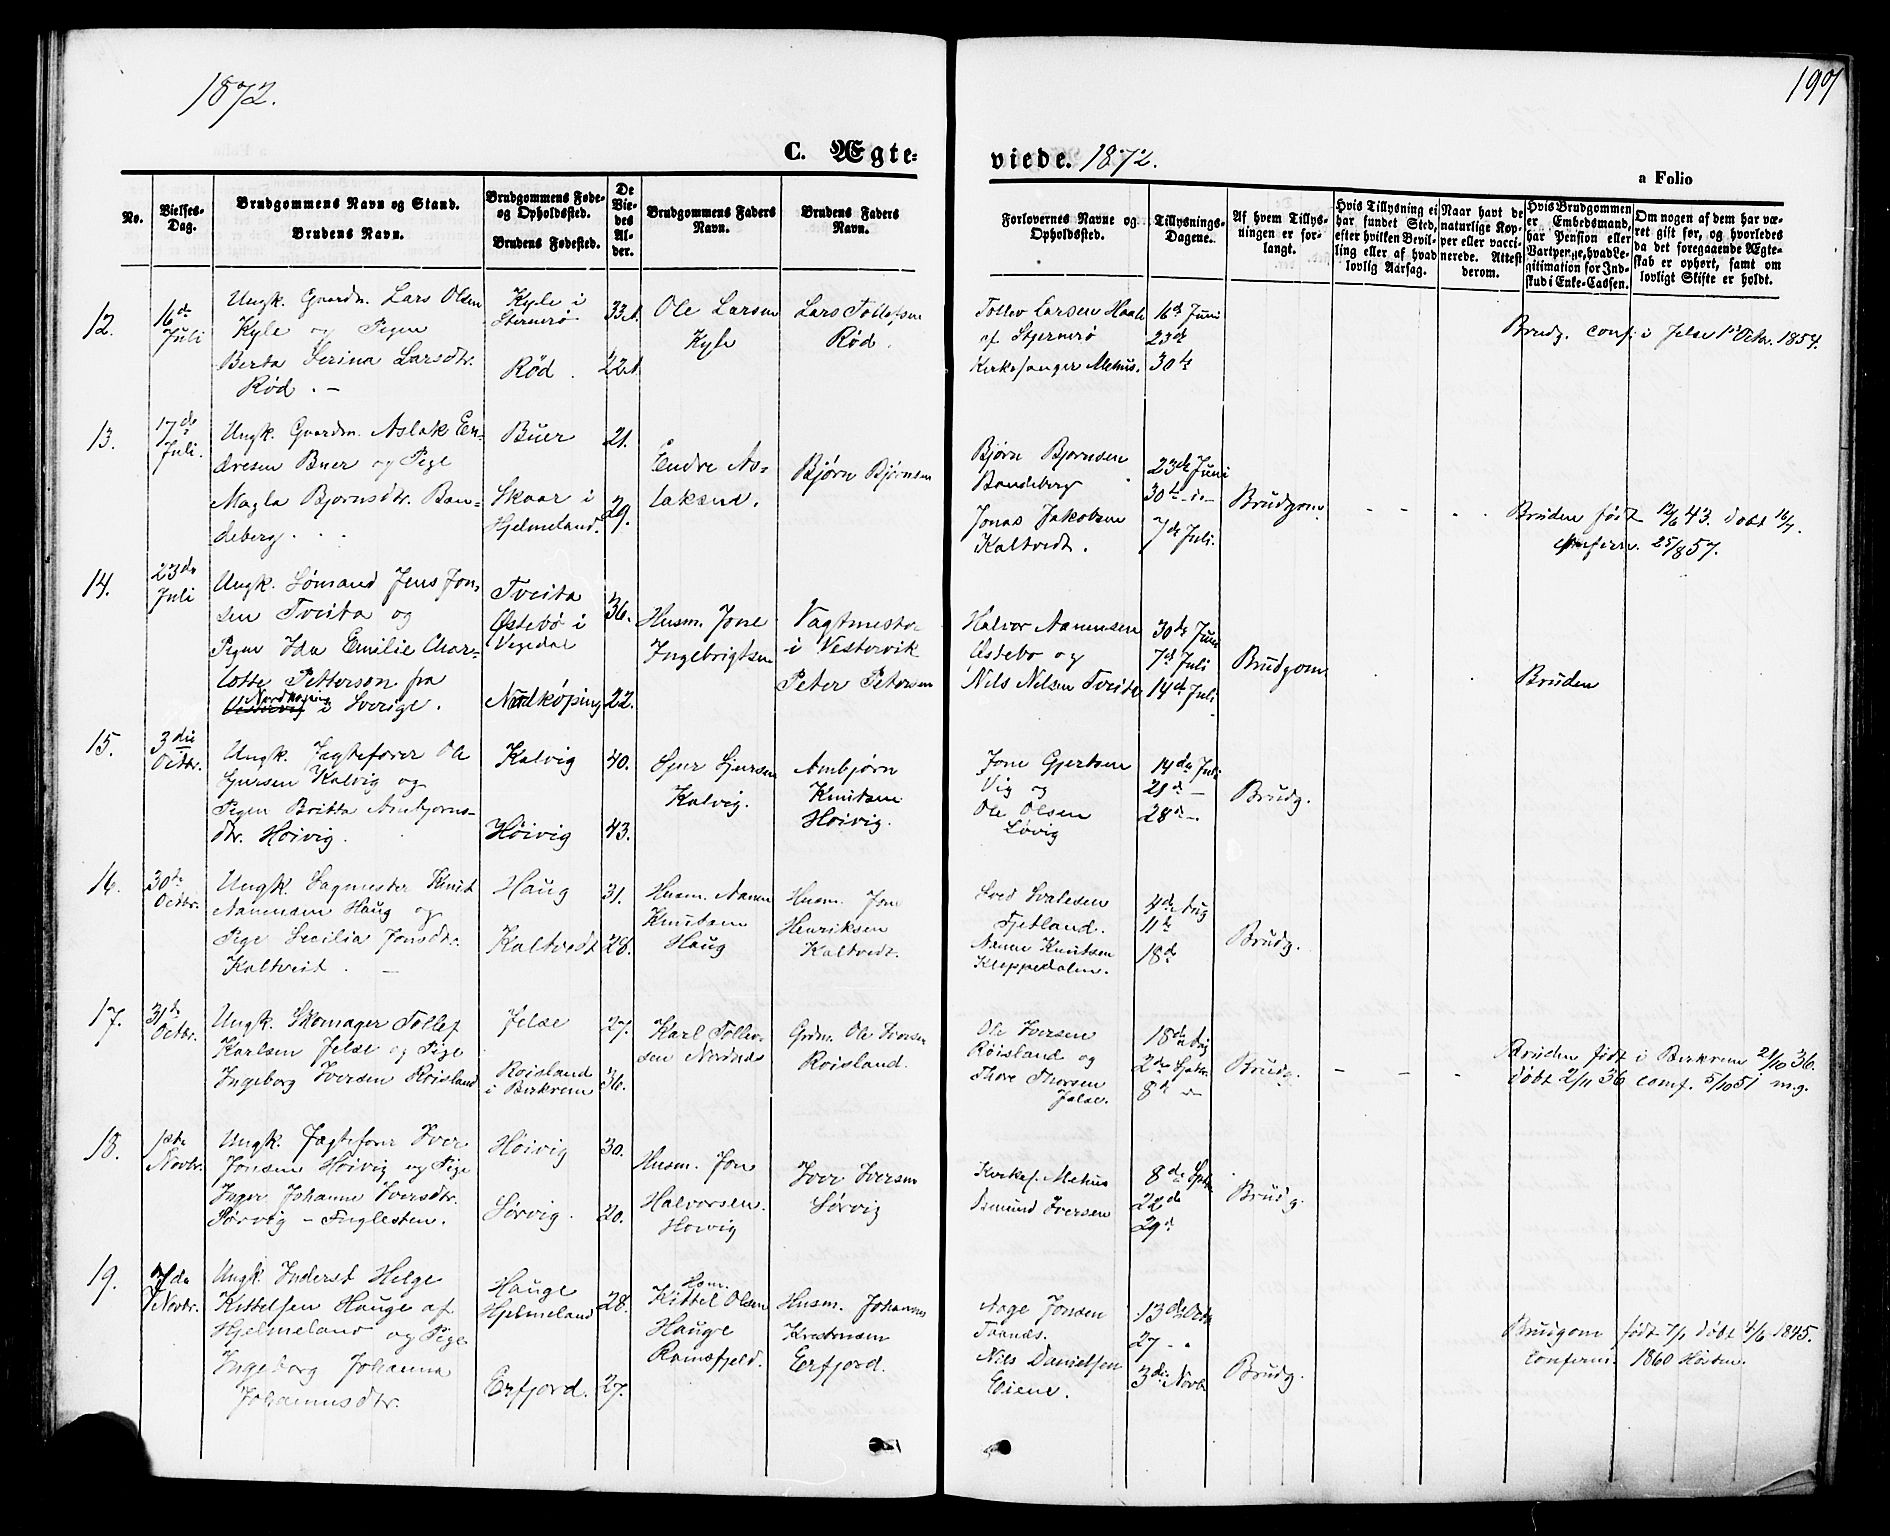 1872.
197
C. Ægte-
viede. 1872.
a Folio
No.
Vielses-
Dag.
Brudgommens Navn og Stand.
Brudens Navn.
Brudgommens Føde-
og Opholdssted.
Brudens Fødested.
De
Vie-
des
Al-
der.
Brudgommens Faders
Navn.
Brudens Faders
Navn.
Forlovernes Navne og
Opholdssted.
Tillysnings-
Dagene.
Af hvem Tillys-
ningen er for-
langt.
Hvis Tillysning ei
har fundet Sted,
efter hvilken Bevil-
ling eller af hvad
lovlig Aarsag.
Naar havt de
naturlige Kop-
per eller vacci-
nerede. Attest
derom.
Hvis Brudgommen
er Embedsmand,
har Pension eller
Vartpenge, hvad Le-
gitimation for Ind-
skud i Enke-Cassen.
Om nogen af dem har væ-
ret gift før, og hvorledes
da det foregaaende Ægte-
skab er ophørt, samt om
lovligt Skifte er holdt.
12.
16de
Juli
Ungk. Gaardm. Lars Olsen
Kyle og Pigen
Berta Serina Larsdtr.
Rød. –
Kyle i
Sternerø
Rød.
33
22
Ole Larsen
Kyle
Lars Tollefsen
Rød.
Tollev Larsen Haale
af Stjernerø
Kirkesanger Mehus.
16de Juni
23de
30te
Brudg. conf. i Jelse 1 Octr. 1854.
13.
17de
Juli.
Ungk. Gaardm. Aslak En-
dresen Buer og Pige
Magla Bjørnsdtr. Ban-
deberg . . .
Buer
Skaar i
Hjelmeland.
21.
29.
Endre As-
laksen.
Bjørn Bjørnsen
Bjørn Bjørnsen
Bandeberg
Jonas Jakobsen
Kaltvedt.
23de Juni
30te –
7de Juli.
Brudgom.
Bruden født 12/6 43. døbt 16/7.
confirm. 25/8 57.
14.
23de
Juli
Ungk. Sømand Jens Jon-
sen Tveita og
Pigen Ida Emilie Char-
lotte Petterson fra
Nordkøping
i Sverige.
Tveita
Østebø i
Vegedal
Nordkøping
36.
22.
Husm. Jone
Ingebrigtsen
Vagtmester
i Vestervik
Peter Petersen
Halvor Aanensen
Østebø og
Nils Nilsen Tveite
30de Juni
7de Juli
14de Juli
Brudgom
Bruden
15.
3die
Octbr.
Ungk. Jægtefører Ole
Sjursen Kalvig og
Pigen Britta Ambjørns-
dtr. Høivig.
Kalvig
Høivig
40.
43.
Sjur Sjursen
Kalvig.
Ambjørn
Knudsen
Høivig.
Jone Gjertsen
Vig og
Ole Olsen
Løvig
14de Juli
21de –
28de –
Brudg.
16.
30te
Octbr.
Ungk. Sagmester Knud
Aanensen Haug og
Pige Secilia Jonsdtr.
Kaltveit. –
Haug
Kaltvedt
31.
28.
Husm. Aanen
Knudsen
Haug
Husm. Jone
Henriksen
Kaltvedt.
Svend Svalesen
Fjetland.
Aanen Knutsen
Kleppedalen.
4de Aug
11te
18de
Brudg.
17.
31te
Octbr.
Ungk. Skomager Tollef
Karlsen Jelse og Pige
Ingeborg Iversen Røisland
Jelse
Røisland
i Berkrem
27.
36.
Karl Tollev-
sen Nordnes
Gdm. Ole Iversen
Røisland.
Ole Iversen
Røisland og
Thore Thorsen
Jelse.
18de Aug
2de Septbr.
8de –
Brudg.
Bruden født i Berkrem 21/10 36.
døbt 2/11 36 conf. 5/10 51 m.g.
18.
1ste
Novbr.
Ungk. Jægtefører Iver
Jonsen Høivig og Pige
Inger Johanne Iversdtr.
Sørvig – Fuglesten.
Høivig
Sørvig.
30.
20.
Husm. Jone
Halvorsen.
Høivig
Iver Iversen
Sørvig
Kirkes. Mehus
Osmund Iversen
8de Sptbr.
22de
29de
Brudg.
19.
7de
Novbr.
Ungk. Inderst Helge
Kittelsen Hauge af
Hjelmeland og Pige
Ingeborg Johanna
Johannesdtr.
Hauge
Hjelmeland
Erfjord.
28.
27.
Hsm.
Kittel Olsen
Hauge
Ramsfjeld.
Husm. Johannes
Kristensen
Erfjord.
Aage Jonsen
Tranås.
Nils Danielsen
Eiene.
13de Octbr
27 –
3die Novb.
Brudg.
Brudgom født 7/1 døbt 4/6 1845.
Confirm. 1860 Høsten.